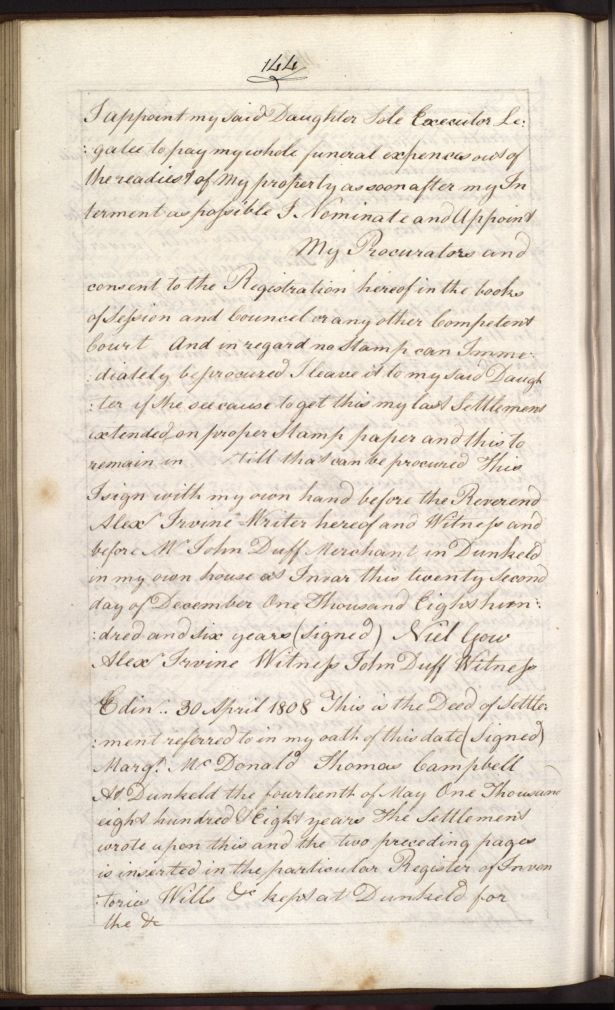 144
I appoint my said Daughter Sole Executor Le:
:gatee to pay my whole funeral expences out of
the readiest of My property as soon after my In
terment as possible I Nominate and Appoint
My Procurators and
consent to the Registration hereof in the books
of Session and Councel or any other Competent
Court And in regard no Stamp can Imme:
:diately be procured I leave it to my said Daugh
:ter if she see cause to get this my last Settlement
extended on proper Stamp paper and this to
remain in till that can be procured This
I sign with my own hand before the Reverend
Alexr Irvine Writer hereof and Witness and
before Mr John Duff Merchant in Dunkeld
in my own house at Invar this twenty second
day of December One Thousand Eight hun:
:dred and six years (signed) Niel Gow
Alexr Irvine Witness John Duff Witness
Edinr: 30 April 1808 This is the Deed of Settle:
:ment referred to in my oath of this date (Signed)
Margt. McDonald Thomas Campbell
At Dunkeld the fourteenth of May One Thousand
eight hundred & Eight years The Settlement
wrote upon this and the two preceding pages
is inserted in the particular Register of Inven
:tories Wills &c kept at Dunkeld for
the &c